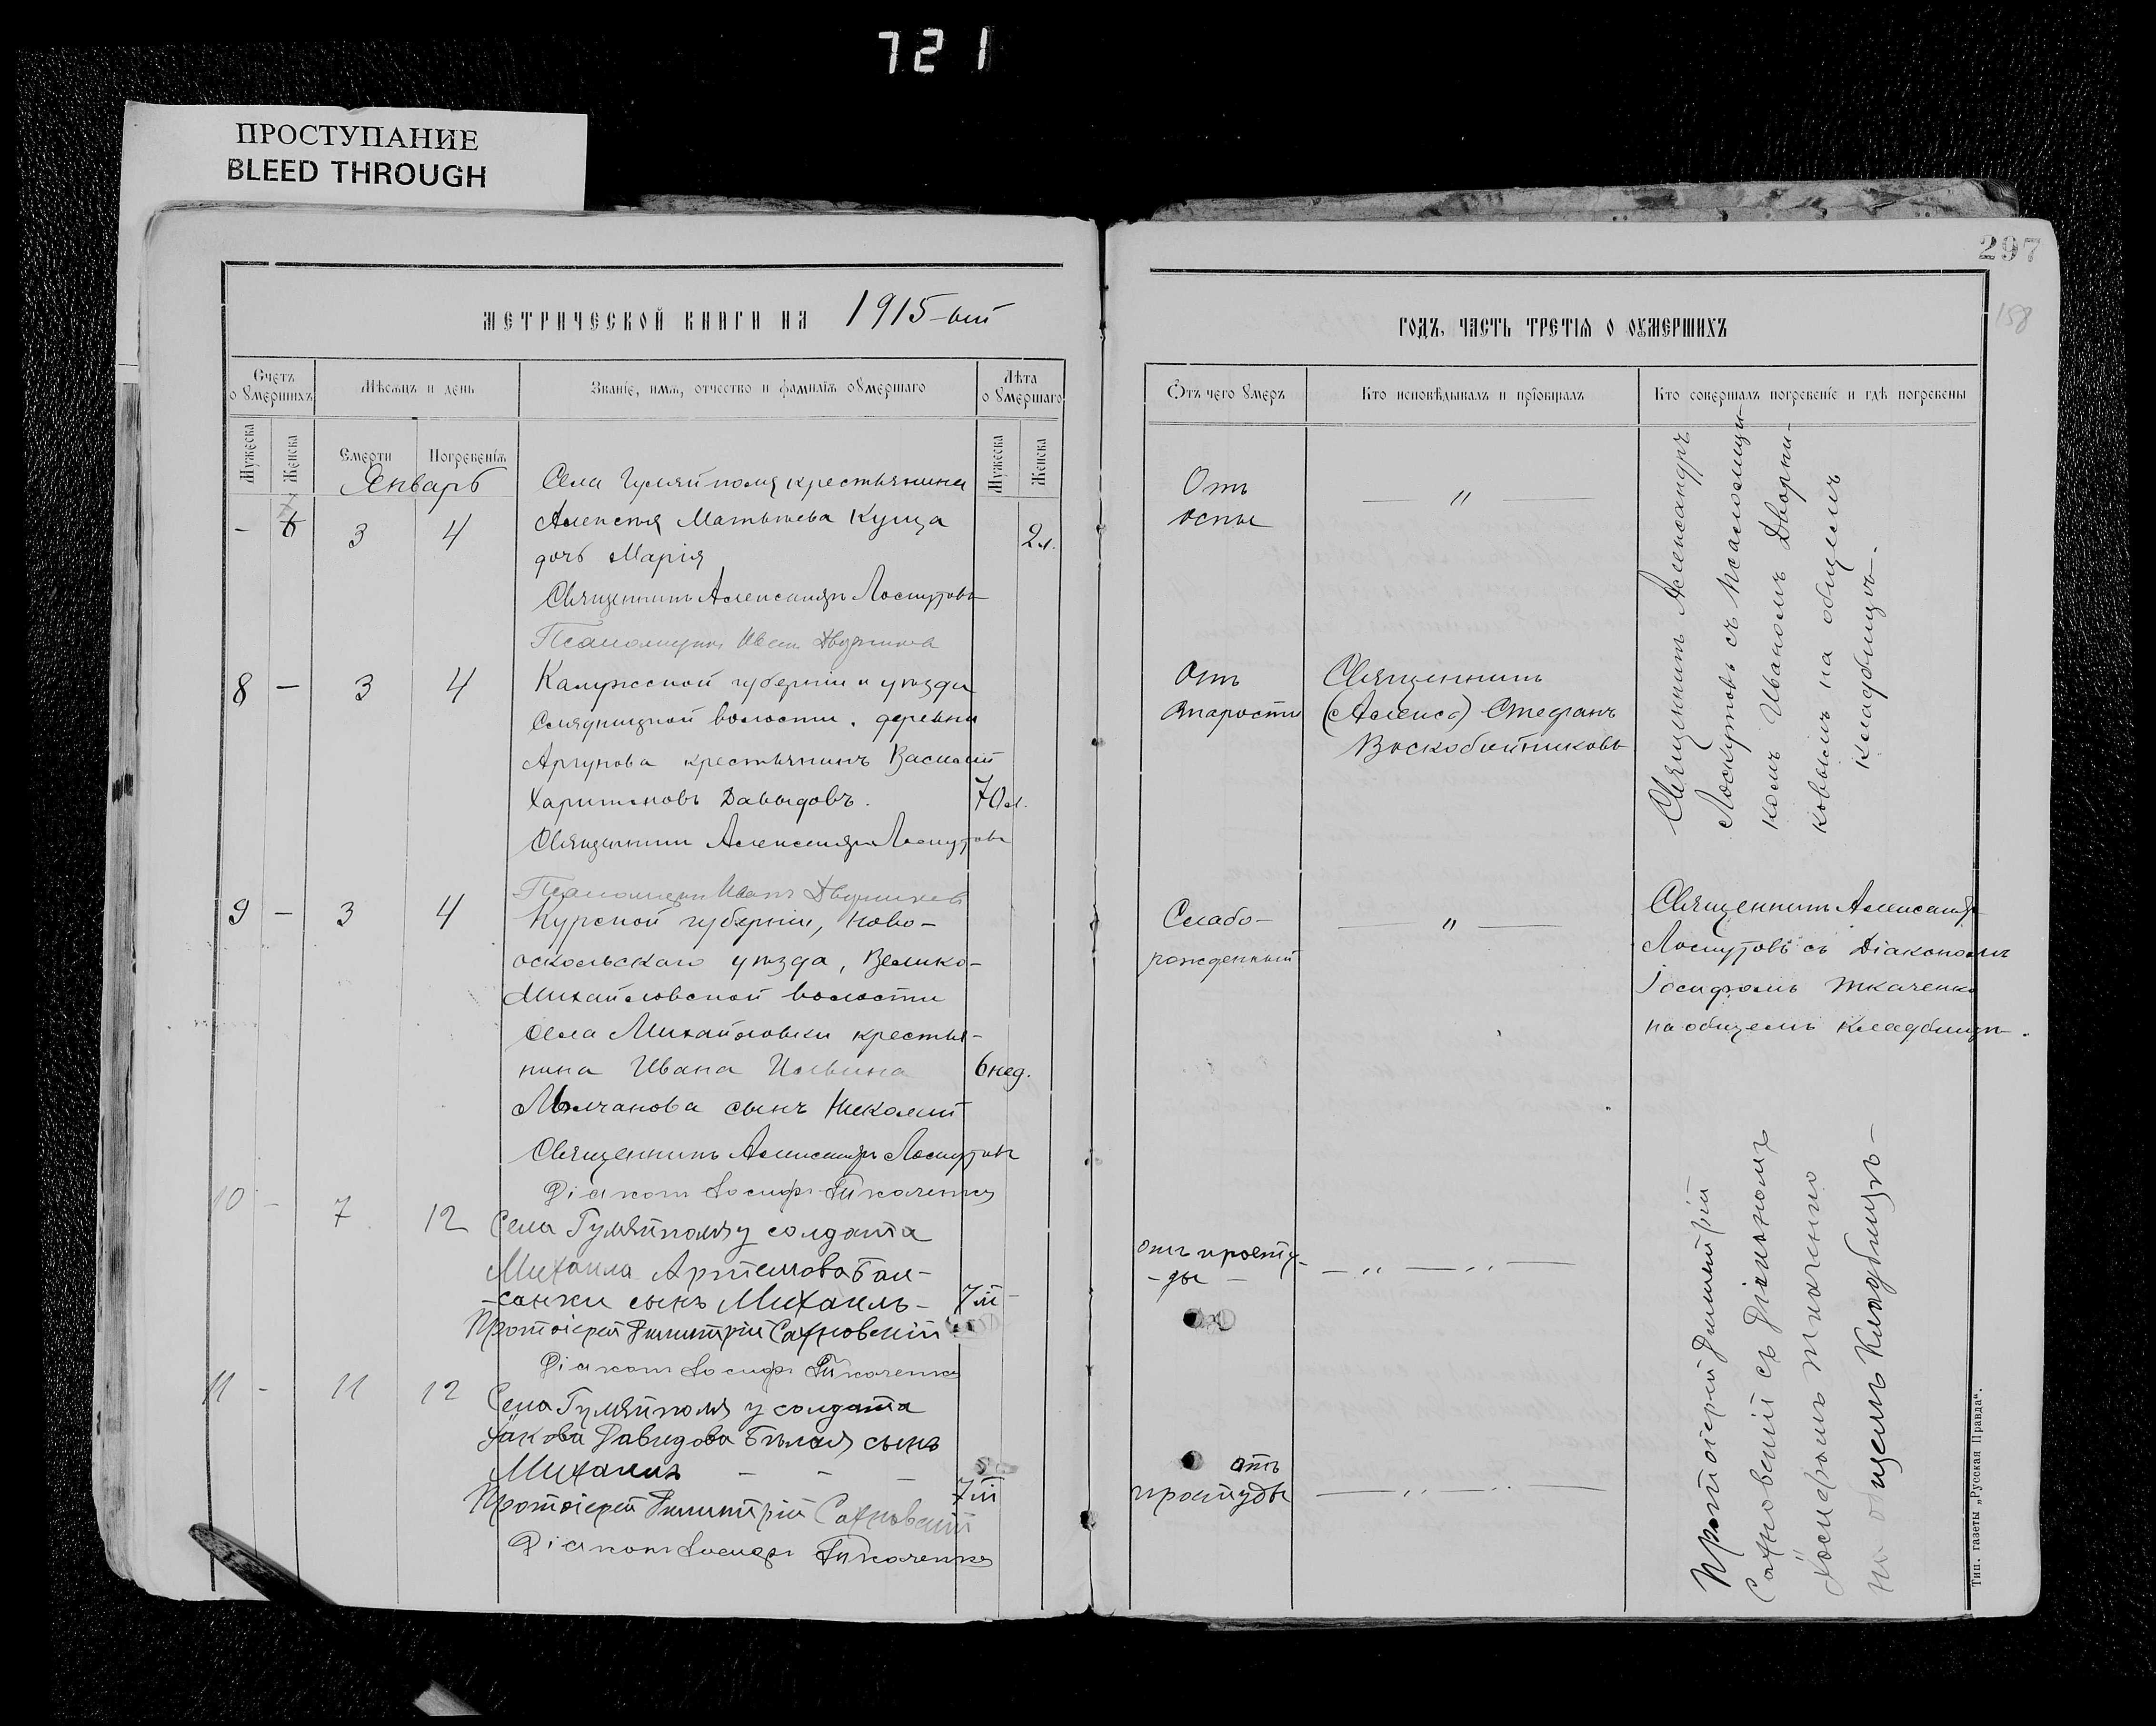 721
ПРОСТУПАНИЕ
BLEED THROUGH
297
158
МЕТРИЧЕСКОЙ КНИГИ НА 1915-ый
Счетъ о умершихъ
Мѣсяцъ и день
Званіе, имя, отчество и фамилія умершаго
Лѣта умершаго
Мужеска
Женска
Смерти
Погребенія
Мужеска
Женска
Январь
Села Гуляйполя крестьянина
- 6 3 4 Алексѣя Матвѣева Куща 2 л.
дочь Марія
Священникъ Александръ Лоскутовъ
Псаломщикъ Иван Дворников
8 - 3 4 Калужской губерніи и уѣзда
волости, деревни
Аргунова крестьянинъ Василій
Харитоновъ Давыдовъ. 70 л.
Священникъ Александръ Лоскутовъ
Псаломщикъ Иванъ Дворников
9 - 3 4 Курской губерніи, Ново-
оскольскаго уѣзда, Велико-
Михайловской волости
села Михайловки крестья-
нина Ивана Ильина 6 нед.
Молчанова сынъ Николай
Священникъ Александръ Лоскутовъ
Діаконъ Іосифъ Ткаченко
10 - 7 12 Села Гуляйполя у солдата
Михаила Артемова Бал-
-санки сынъ Михаилъ - 7 м
Протоіерей Димитрій Сахновскій
Діаконъ Іосифъ Ткаченко
11 - 11 12 Села Гуляйполя у солдата
Якова Давидова Бѣлая сынъ
Михаилъ - - -
7 м
Протоіерей Димитрій Сахновскій
Діаконъ Іосифъ Ткаченко
ГОДЪ, ЧАСТЬ ТРЕТІЯ О УМЕРШИХЪ
Отъ чего умеръ
Кто исповѣдывалъ и пріобщалъ
Кто совершалъ погребеніе и гдѣ погребены
Отъ
оспы
— " —
Священникъ Александръ
Лоскутовъ съ псаломщи-
комъ Иваномъ Дворни-
ковымъ на общемъ
кладбищѣ.
Отъ
старости
Священникъ
Стефанъ
Воскобойниковъ
Слабо-
рожденный
— " —
Священникъ Александръ
Лоскутовъ съ Діакономъ
Іосифомъ Ткаченко
на общемъ кладбищѣ.
отъ просту-
-ды -
— " — " —
отъ
простуды
— " — " —
Протоіерей Димитрій
Сахновскій съ Діакономъ
Іосифомъ Ткаченко
на общемъ кладбищѣ -
Тип. газеты „Русская Правда“.